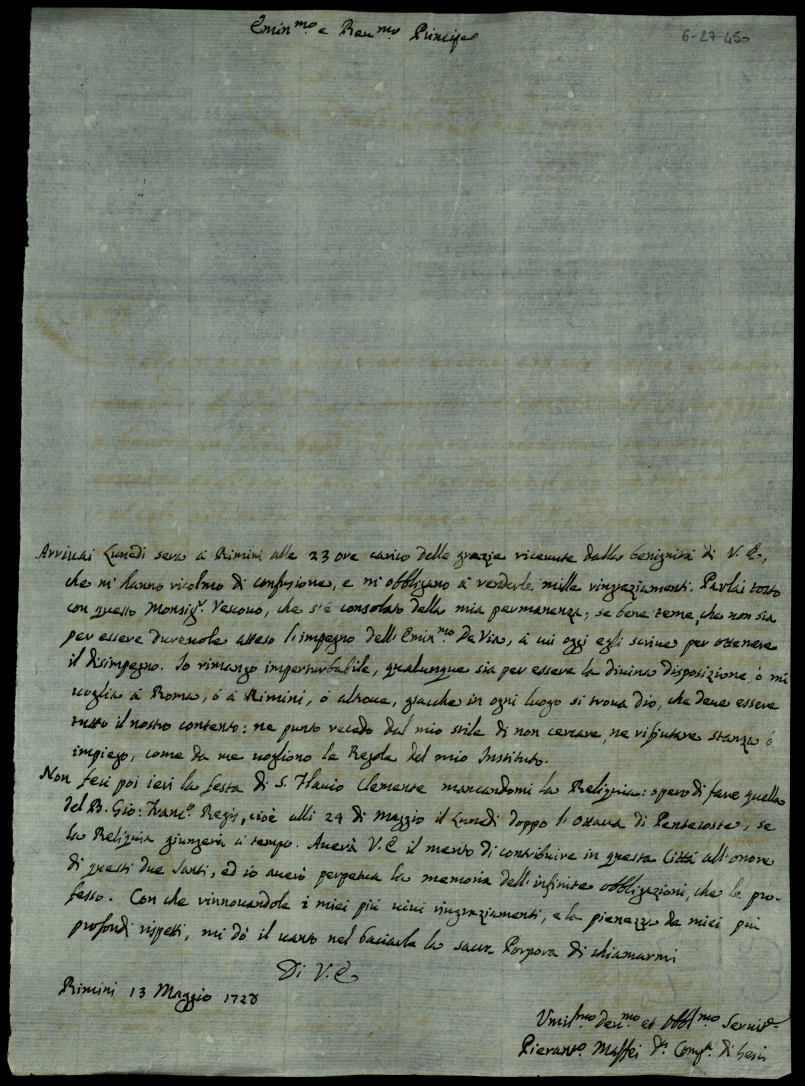 Emin.mo e Reu.mo Principe
6-27-45
Arriuai Lunedi sera à Rimini alle 23 ore carico delle grazie riceuute dalla benignità di V. E,
che mi hanno ricolmo di confusione, e mi obbligano à renderle mille ringraziamenti. Parlai tosto
con questo Monsig.r Vescouo, che s'è consolato della mia permanenza, se bene teme, che non sia
per essere dureuole atteso l'impegno dell'Emin.mo Da Via, à cui oggi egli scriue per ottenere
il disimpegno. Io rimango imperturbabile, qualunque sia per essere la diuina disposizione, ò mi
uoglia à Roma, ò à Rimini, ò altroue, giacche in ogni luogo si troua Dio, che deue essere
tutto il nostro contento: ne punto recedo dal mio stile di non cercare, ne rifiutare stanza ò
impiego, come da me uogliono le Regole del mio Instituto.
Non feci poi ieri la festa di S. Flauio Clemente mancandomi la Reliquia: spero di fare quella
del B. Gio: Franc.o Regis, cioè alli 24 di Maggio il Lunedi doppo l'Ottaua di Pentecoste, se
la Reliquia giungerà à tempo. Auerà V. E il merito di contribuire in questa Città all'onore
di questi due Santi, ed io auerò perpetua la memoria dell'infinite obbligazioni, che le pro-
fesso. Con che rinnouandole i miei più uiui ringraziamenti, e la pienezza de miei più
profondi rispetti, mi dò il uanto nel baciarle la sacra Porpora di chiamarmi
Di V. E
Rimini 13 Maggio 1728
Vmil.mo deu.mo et obbl.mo Seruit.e
Pierant.o Maffei d.a Comp.a di Gesù